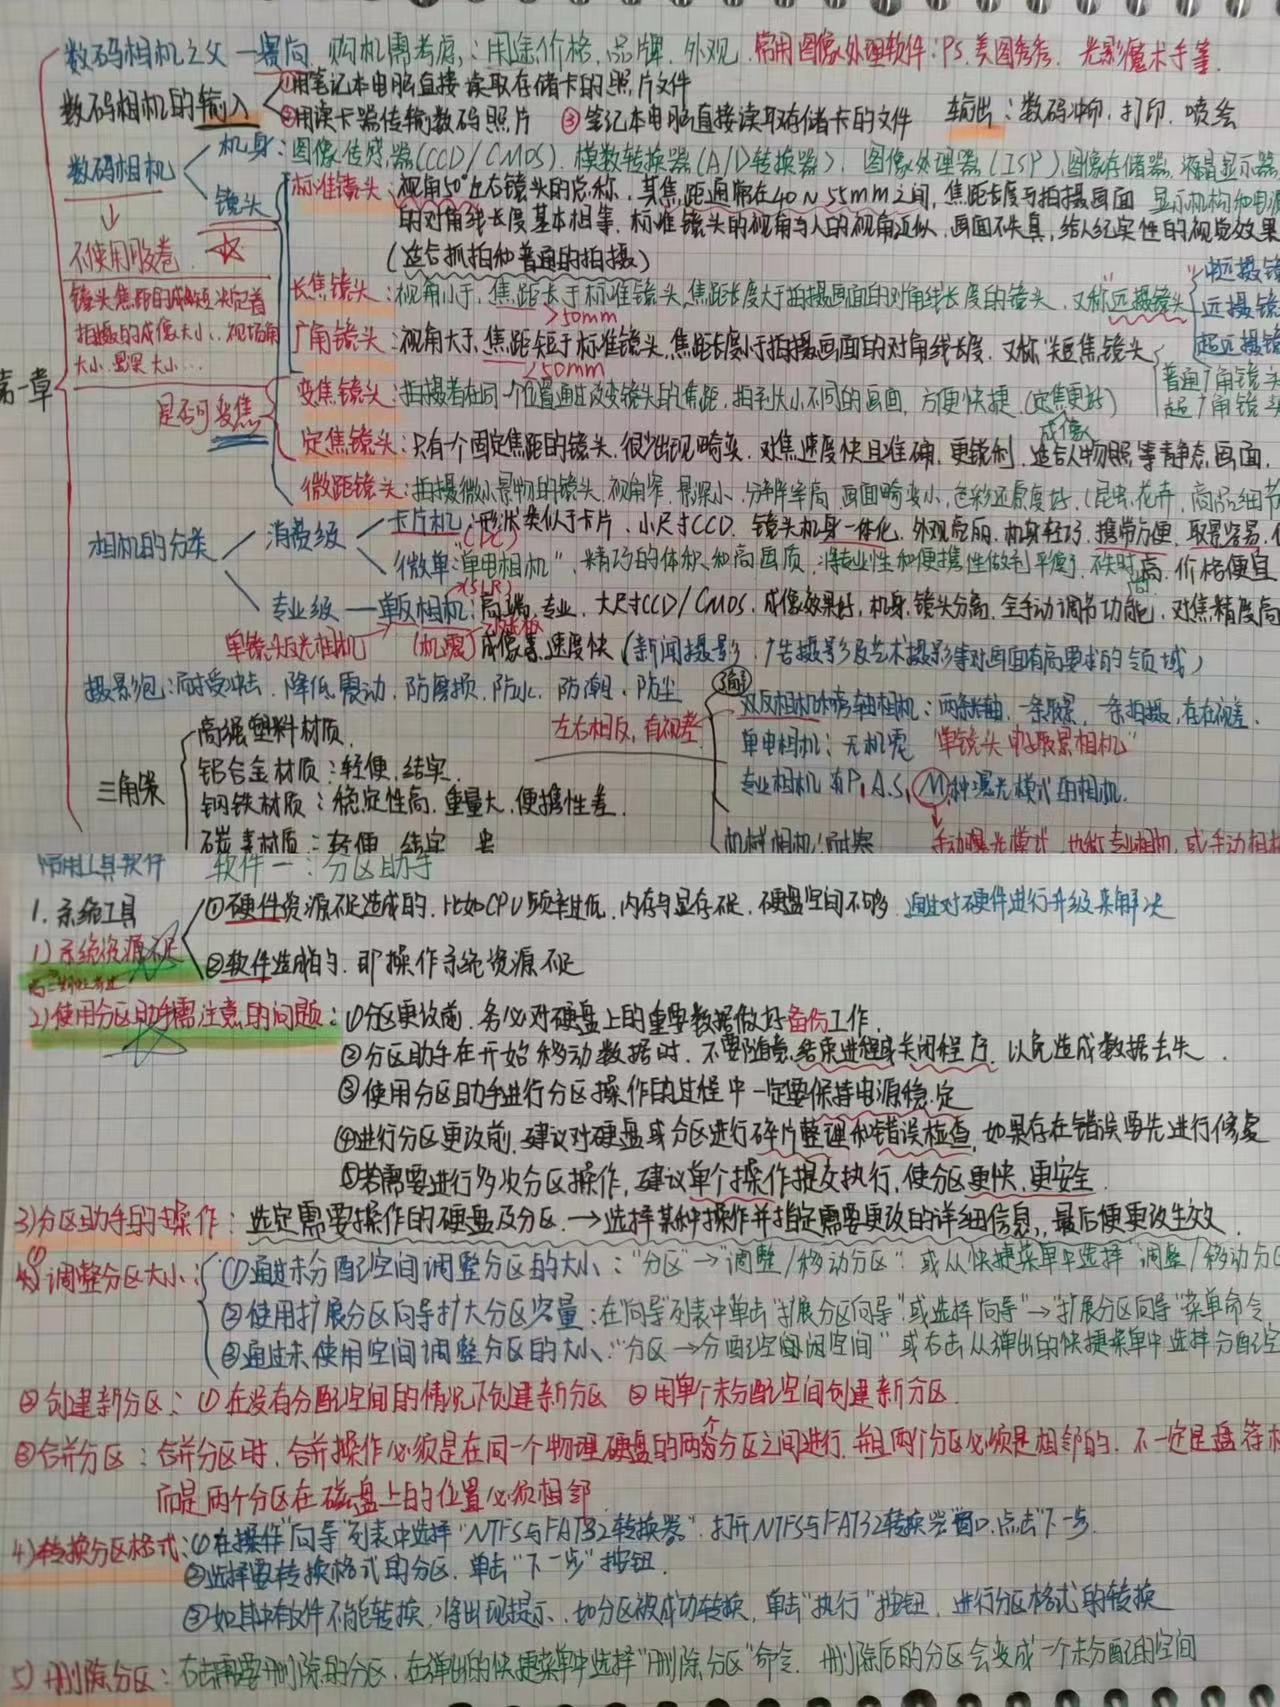 数码相机之父—赛尚 购机需考虑：用途、价格、品牌、外观 常用图像处理软件：PS、美图秀秀、光影魔术手等
数码相机的输入
①用笔记本电脑直接读取存储卡的照片文件
②用读卡器传输数码照片 ③笔记本电脑直接读取存储卡的文件 输出：数码冲印、打印、喷绘
数码相机
机身：图像传感器(CCD/CMOS)、模数转换器(A/D转换器)、图像处理器(ISP)图像存储器、液晶显示器
显示机构和电源
镜头
标准镜头：视角50°左右镜头的总称，其焦距通常在40~55mm之间，焦距长度与拍摄画面
的对角线长度基本相等，标准镜头的视角与人的视角近似，画面不失真，给人纪实性的视觉效果
(适合抓拍和普通的拍摄)
不使用胶卷
镜头焦距的长短决定着
拍摄的成像大小、视场角
大小、景深大小…
长焦镜头：视角小于，焦距长于标准镜头，焦距长度大于拍摄画面的对角线长度的镜头，又称远摄镜头
>50mm
中远摄镜
远摄镜
超远摄镜
广角镜头：视角大于，焦距短于标准镜头，焦距长度小于拍摄画面的对角线长度，又称"短焦镜头
<50mm
普通广角镜头
超广角镜头
第一章
是否可变焦
变焦镜头：拍摄者在同一个位置通过改变镜头的焦距，拍充大小不同的画面，方便快捷(定焦更好)
成像
定焦镜头：只有一个固定焦距的镜头，很少出现畸变，对焦速度快且准确，更锐利，适合人物照等静态画面，
微距镜头：拍摄微小景物的镜头，视角窄，景深小，分辨率高，画面畸变小，色彩还原度好，(昆虫、花卉，商品细节
相机的分类
消费级
卡片机：形状类似于卡片，小尺寸CCD，镜头机身一体化，外观亮丽，机身轻巧，携带方便，取景容易，
(DC)
微单："单电相机"，精巧的体积和高画质，将专业性和便携性做到平衡，价格便宜
专业级—单反相机：高端，专业，大尺寸CCD/CMOS，成像效果好，机身、镜头分离，全手动调节功能，对焦精度高
(SLR)
单镜头反光相机 (机震) 速度快(新闻摄影，广告摄影及艺术摄影等对画面有高要求的领域)
摄影包：耐受冲击，降低震动，防磨损，防水，防潮，防尘
左右相反，有视差
双反相机/旁轴相机：两条光轴，一条取景，一条拍摄，存在视差
单电相机：无机震 "单镜头电子取景相机"
专业相机有P、A、S、M种曝光模式的相机
手动曝光模式，也做专业相机，或手动相机
机械相机：耐寒
三角架
高强塑料材质
铝合金材质：轻便、结实
钢铁材质：稳定性高、重量大，便携性差
碳素材质：轻便、结实、贵
常用工具软件 软件一：分区助手
1. 系统工具
1)系统资源不足
①硬件资源不足造成的，比如CPU频率过低，内存与显存不足，硬盘空间不够 通过对硬件进行升级来解决
②软件造成的，即操作系统资源不足
2)使用分区助手需注意的问题：①分区更改前，务必对硬盘上的重要数据做好备份工作，
②分区助手在开始移动数据时，不要随意结束进程或关闭程序，以免造成数据丢失
③使用分区助手进行分区操作的过程中一定要保持电源稳定
④进行分区更改前，建议对硬盘或分区进行碎片整理和错误检查，如果存在错误要先进行修复
⑤若需要进行多次分区操作，建议单个操作提交执行，使分区更快，更安全
3)分区助手的操作：选定需要操作的硬盘及分区→选择某种操作并指定需要更改的详细信息，最后使更改生效
①调整分区大小：①通过未分配空间调整分区的大小："分区"→"调整/移动分区"或从快捷菜单中选择"调整/移动分区
②使用扩展分区向导扩大分区容量：在"向导"列表中单击"扩展分区向导"或选择"向导"→"扩展分区向导"菜单命令
③通过未使用空间调整分区的大小："分区→分配空闲空间"或右击从弹出的快捷菜单中选择分配空
②创建新分区：①在没有分配空间的情况下创建新分区 ②用单个未分配空间创建新分区
③合并分区：合并分区时，合并操作必须是在同一个物理硬盘的两个分区之间进行，并且两个分区必须是相邻的，不一定是盘符相
而是两个分区在磁盘上的位置必须相邻
4)转换分区格式：①在操作"向导"列表中选择"NTFS与FAT32转换器"，打开NTFS与FAT32转换器窗口，点击"下一步
②选择要转换格式的分区，单击"下一步"按钮
③如其中有文件不能转换，将出现提示，如分区被成功转换，单击"执行"按钮，进行分区格式的转换
5)删除分区：右击需要删除的分区，在弹出的快捷菜单中选择"删除分区"命令，删除后的分区会变成一个未分配的空间